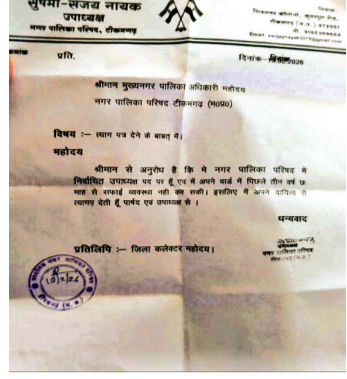 सुषमा-संजय नायक
उपाध्यक्ष
नगर पालिका परिषद, टीकमगढ़
प्रति.
दिनांक-
श्रीमान मुख्यनगर पालिका अधिकारी महोदय
नगर पालिका परिषद टीकमगढ़ (म०प्र०)
विषय :— त्याग पत्र देने के बाबत् में।
महोदय
श्रीमान से अनुरोध है कि मे नगर पालिका परिषद मे
निर्वाचित उपाध्यक्ष पद पर हूँ एवं में अपने वार्ड में पिछले तीन वर्ष छः
माह से सफाई व्यवस्था नही कर सकी। इसलिए में अपने दायित्व से
त्यागपत्र देती हूँ पार्षद एवं उपाध्यक्ष से ।
धन्यवाद
प्रतिलिपि :— जिला कलेक्टर महोदय।
उपाध्यक्ष
नगर पालिका परिषद